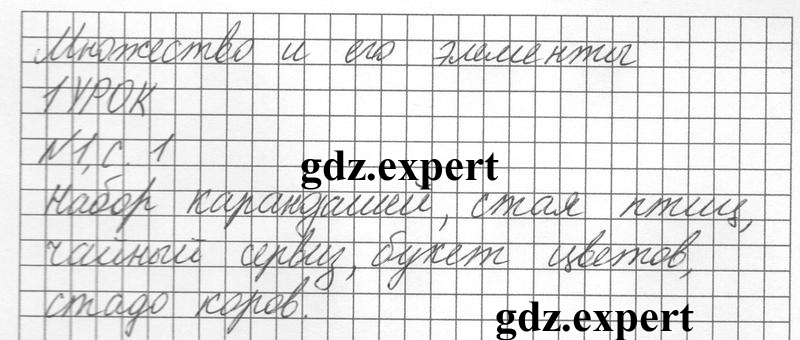 Множество и его элементы
1 УРОК
N1, с. 1
gdz.expert
Набор карандашей, стая птиц,
чайный сервиз, букет цветов,
стадо коров.
gdz.expert